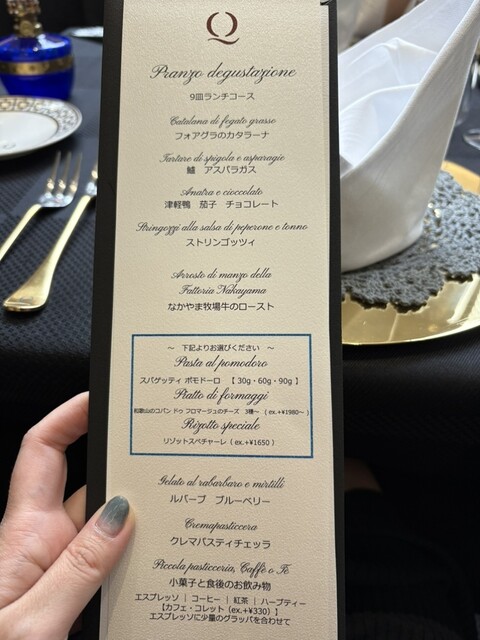 Q
Pranzo degustazione
9皿ランチコース
Catalana di fegato grasso
フォアグラのカタラーナ
Tartare di spigola e asparagie
鱸 アスパラガス
Anatra e cioccolato
津軽鴨 茄子 チョコレート
Stringozzi alla salsa di peperone e tonno
ストリンゴッツィ
Arrosto di manzo della
Fattoria Nakayama
なかやま牧場牛のロースト
～ 下記よりお選びください ～
Pasta al pomodoro
スパゲッティ ポモドーロ 【30g・60g・90g】
Piatto di formaggi
和歌山のコパン ドゥ フロマージュのチーズ 3種～ (ex.+¥1980～)
Rizotto speciale
リゾットスペチャーレ (ex.+¥1650)
Gelato al rabarbaro e mirtilli
ルバーブ ブルーベリー
Cremapasticcera
クレマパスティチェッラ
Piccola pasticceria, Caffè o Tè
小菓子と食後のお飲み物
エスプレッソ | コーヒー | 紅茶 | ハーブティー
【カフェ・コレット (ex.+¥330)】
エスプレッソに少量のグラッパを合わせて